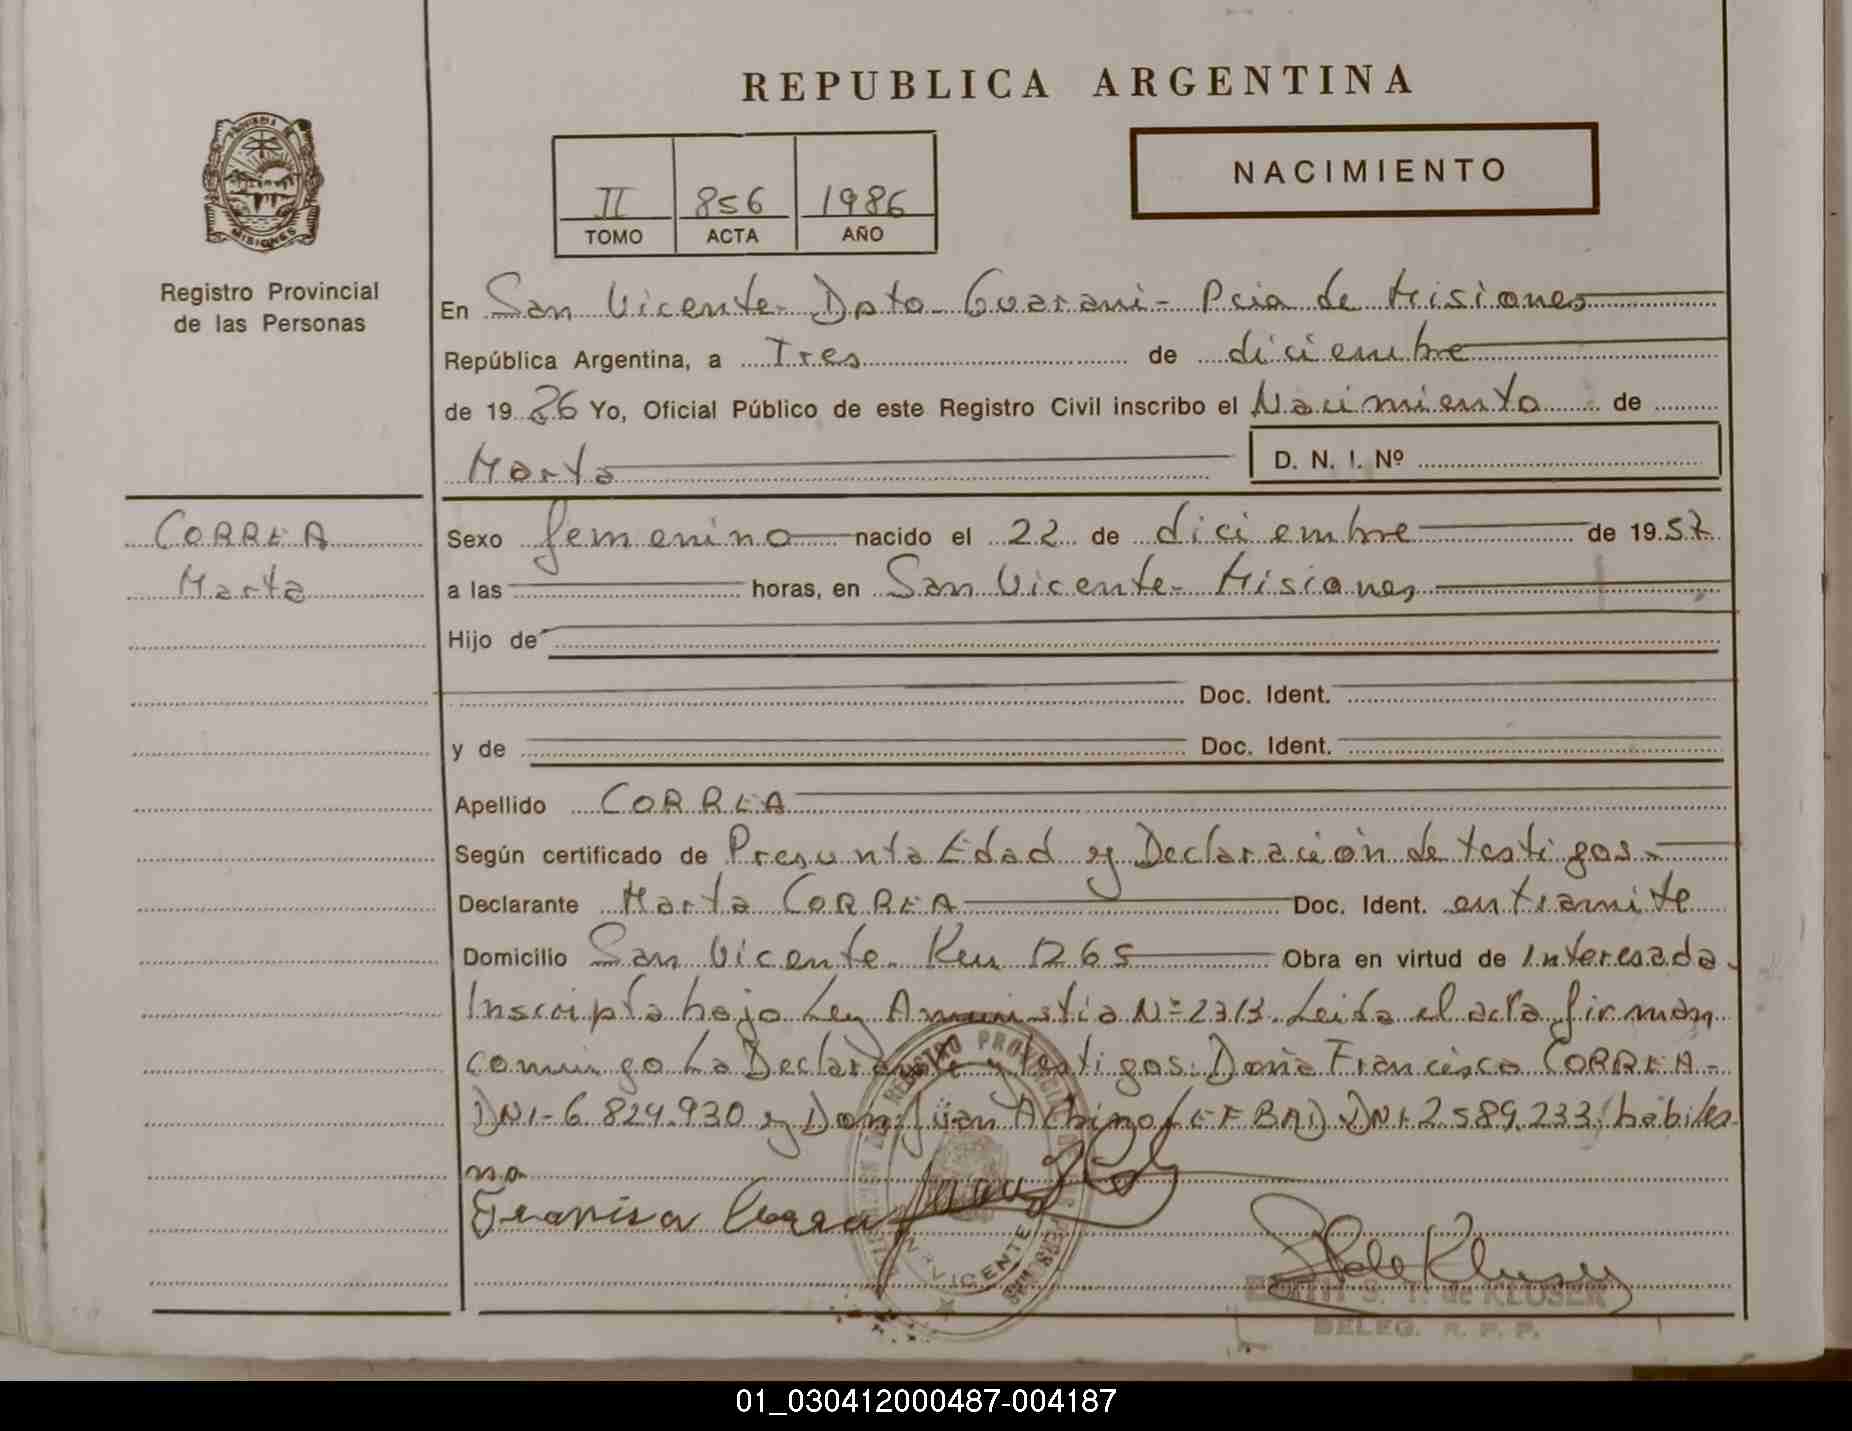 REPUBLICA ARGENTINA
PROVINCIA DE
MISIONES
Registro Provincial
de las Personas
II 856 1986
TOMO ACTA AÑO
NACIMIENTO
En San Vicente - Dpto Guarani - Pcia de Misiones
República Argentina, a Tres de diciembre
de 1986 Yo, Oficial Público de este Registro Civil inscribo el Nacimiento de
Marta D. N. I. Nº
CORREA
Marta
Sexo femenino nacido el 22 de diciembre de 1957
a las horas, en San Vicente - Misiones
Hijo de
Doc. Ident.
y de Doc. Ident.
Apellido CORREA
Según certificado de Presunta Edad y Declaración de testigos -
Declarante Marta CORREA Doc. Ident. en tramite
Domicilio San Vicente - Km 1265 Obra en virtud de Interesada.
Inscripta bajo Ley Amnistia Nº 2313. Leida el acta firman
conmigo La Declarante y testigos: Doña Francisca CORREA -
DNI - 6.824.930 y Don Juan Achino DNI 2.589.233, habiles
no
Francisca Correa
REGISTRO PROVINCIAL DE LAS PERSONAS
VICENTE
EDITH S. T. de KLUSER
DELEG. R. P. P.
01_030412000487-004187